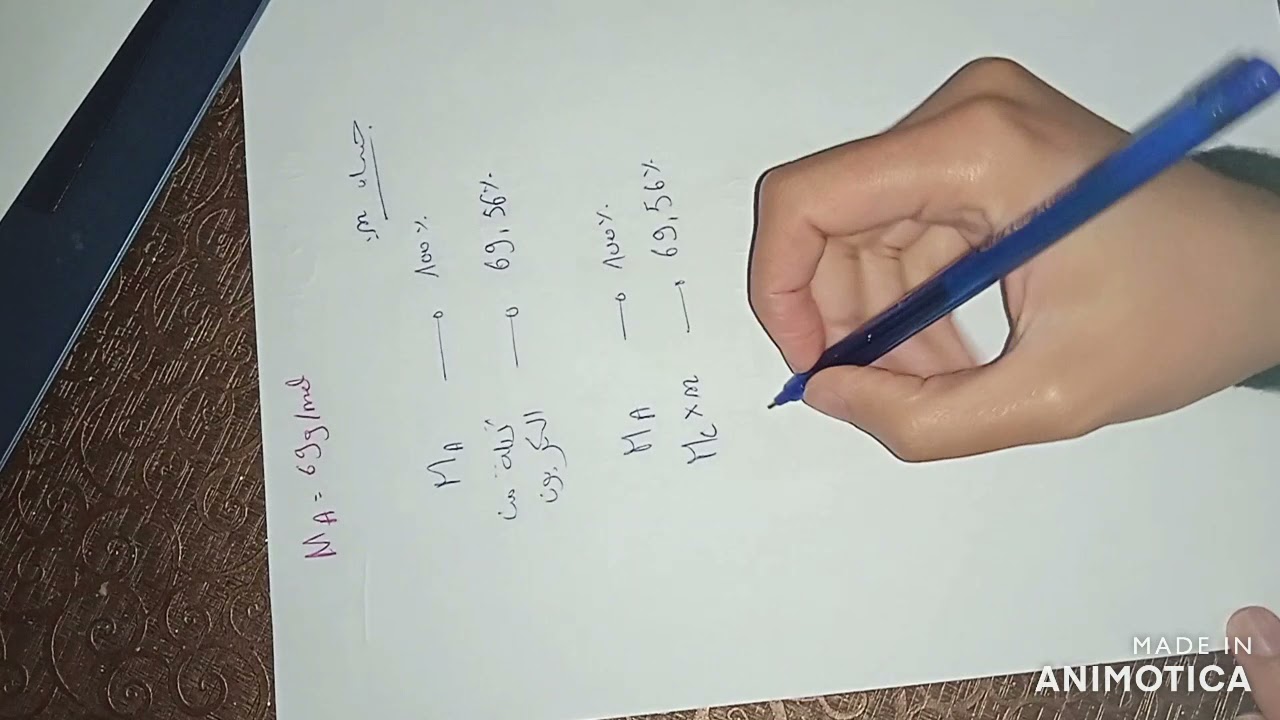 M_A = 69g/mol
حساب x:
M_A → 100%
كتلة من → 69,56%
الكربون
M_A → 100%
M_C × x → 69,56%
MADE IN
ANIMOTICA